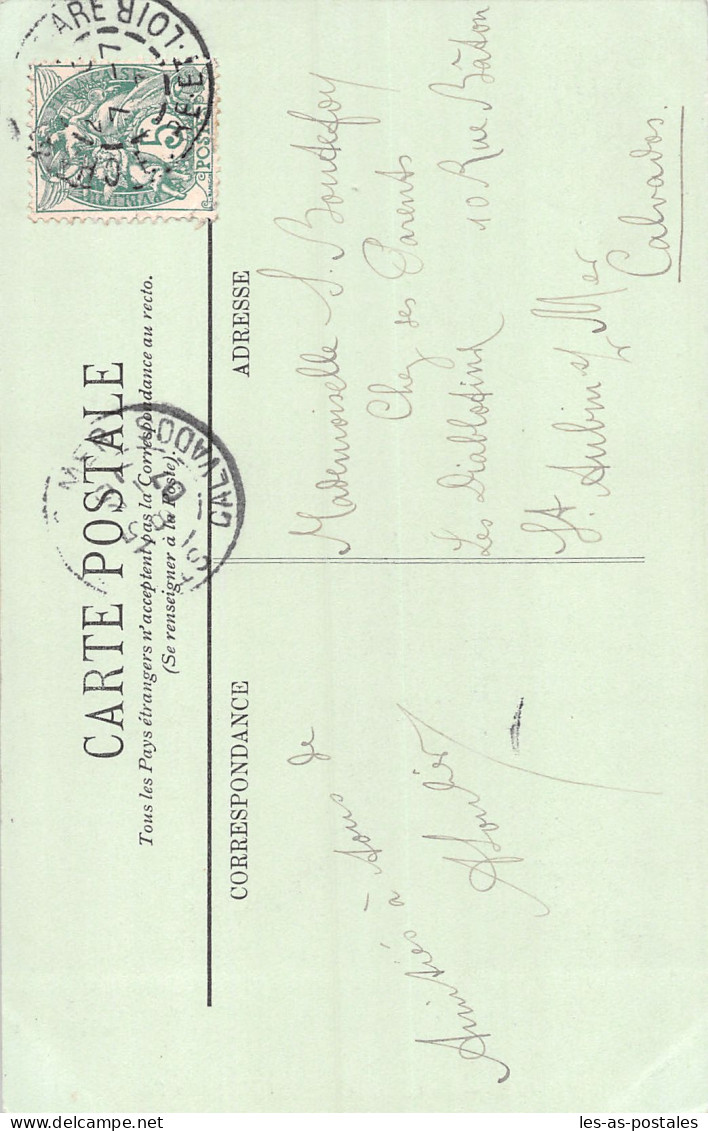 CARTE POSTALE
Tous les Pays étrangers n'acceptent pas la Correspondance au recto.
(Se renseigner à la Poste).
CORRESPONDANCE
ADRESSE
Amitiés à tous de
Mademoiselle S. Boutefoy
Chez ses Parents
Les Diablotins 10 Rue Bâton
St. Aubin s/ Mer
Calvados.
GARE
LOIR
5
POSTES
CALVADOS
MER
07
les-as-postales.com